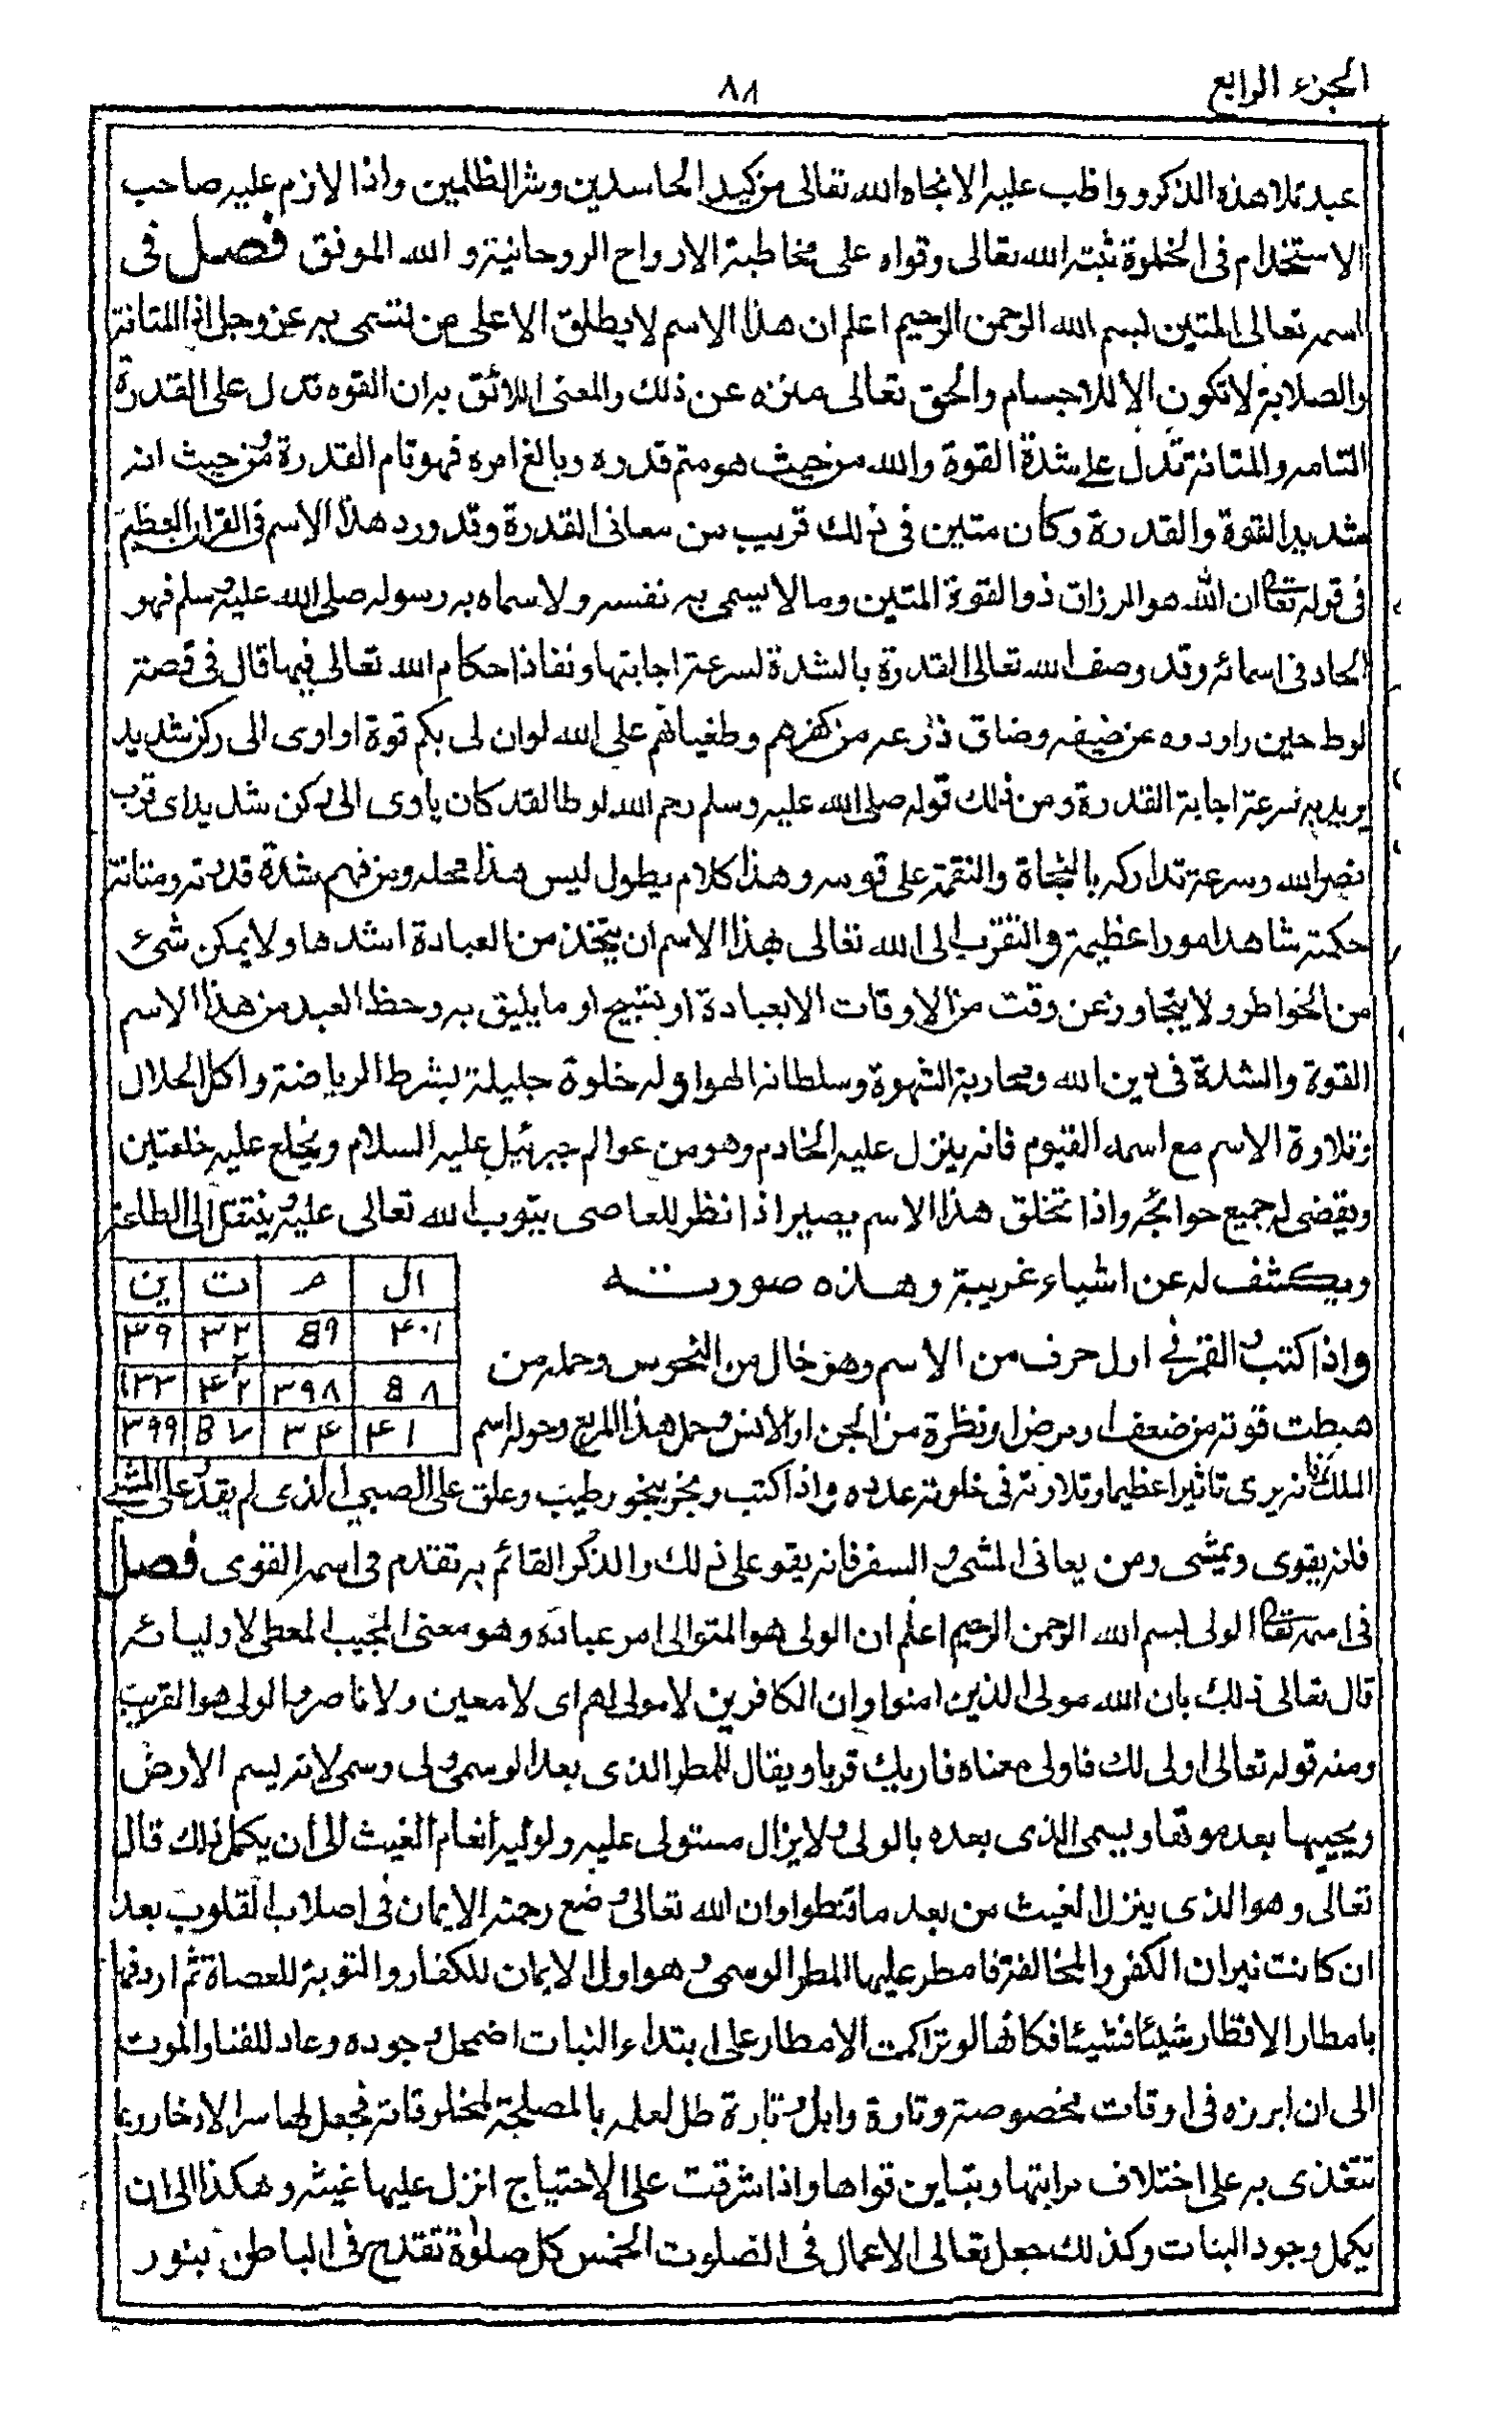 الجزء الرابع
٨٨
عبد تلا هذه الذكر وواظب عليه الا نجاه الله تعالى من كيد الحاسدين وشر الظلمين واذا لازم عليه صاحب
الاستخدام فى الخلوة ثبته الله تعالى وقواه على مخاطبة الارواح الروحانية و الله الموفق فصل فى
اسمه تعالى المتين بسم الله الرحمن الرحيم اعلم ان هذا الاسم لا يطلق الا على من تسمى به عز وجل اذا المتانة
والصلابة لا تكون الا للاجسام والحق تعالى منزه عن ذلك والمعنى اللائق به ان القوه تدل على القدرة
التامه والمتانة تدل على شدة القوة والله من حيث هو متم قدره وبالغ امره فهو تام القدرة ومن حيث انه
شديد القوة والقدرة وكان متين فى ذلك قريب من معانى القدرة وقد ورد هذا الاسم فى القران العظيم
فى قوله تعا ان الله هو الرزاق ذو القوة المتين وما لا يسمى به نفسه ولا سماه به رسوله صلى الله عليه وسلم فهو
الحاد فى اسمائه وقد وصف الله تعالى القدرة بالشدة لسرعة اجابتها ونفاذ احكام الله تعالى فيها قال فى قصة
لوط حين راودوه عن ضيفه وضاق ذرعه من كفرهم وطغيانهم على الله لو ان لى بكم قوة او اوى الى ركن شديد
يريد به سرعة اجابة القدرة ومن ذلك قوله صلى الله عليه وسلم رحم الله لوطا لقد كان ياوى الى ركن شديد اى قرب
نصر الله وسرعة تداركه بالنجاة والنقمة على قومه وهذا كلام يطول ليس هذا محله ومن فهم شدة قدرته ومتانة
حكمته شاهد امورا عظيمة والتقرب الى الله تعالى بهذا الاسم ان يتخذ من العبادة اشدها ولا يمكن شىء
من الخواطر ولا يتجاوز عن وقت من الاوقات الا بعبادة او بتبيح او ما يليق به وحظ العبد من هذا الاسم
القوة والشدة فى دين الله ومحاربة الشهوة وسلطانه الهوا وله خلوة جليلة بشرط الرياضة واكل الحلال
وتلاوة الاسم مع اسمه القيوم فانه ينزل عليه الخادم وهو من عوالم جبرئيل عليه السلام ويخلع عليه خلعتين
ويقضى له جميع حوائجه واذا تخلق هذا الاسم يصير اذا نظر للعاصى يتوب الله تعالى عليه وينتقل الى الطاعة
ويكشف له عن اشياء غريبة وهذه صورته
ال م ت ين
۴٠١ 8٩ ٣٢ ٣٩
8٨ ٣٩٨ ۴٢ ١٣٣
۴١ ٣۴ 8٧ ٣٩٩
واذا كتب والقمر فى اول حرف من الاسم وهو خال من النحوس وحمله من
هبطت قوته من ضعف او مرض او نظرة من الجن او الانس وحمل هذا المربع وحوله اسم
الملك فانه يرى تاثيرا عظيما وتلاوته فى خلوته عدده واذا كتب وبخر ببخور طيب وعلق على الصبى الذى لم يقدر على المشى
فانه يقوى ويمشى ومن يعانى المشى والسفر فانه يقو على ذلك والذكر القائم به تقدم فى اسمه القوى فصل
فى اسمه تعا الولى بسم الله الرحمن الرحيم اعلم ان الولى هو المتوالى امر عباده وهو معنى المجيب المعطى لاوليائه
قال تعالى ذلك بان الله مولى الذين امنوا وان الكافرين لا مولى لهم اى لا معين ولا ناصر والولى هو القريب
ومنه قوله تعالى اولى لك فاولى معناه فاربك قربا ويقال للمطر الذى بعد الوسمى ولى وسمى لانه يسم الارض
ويحييها بعد موتها ويسمى الذى بعده بالولى ولا يزال مستولى عليه ولوليه أنعام الغيث الى ان يكمل ذلك قال
تعالى وهو الذى ينزل الغيث من بعد ما قنطوا وان الله تعالى وضع رحمة الايمان فى اصلاب القلوب بعد
ان كانت نيران الكفر والمخالفة فامطر عليها المطر الوسمى وهو اول الايمان للكفار والتوبة للعصاة ثم اردفها
بامطار الافظار شيئا فشيئا فكانها لو تراكمت الامطار على ابتداء النبات اضمحل وجوده وعاد للفنا والموت
الى ان ابرزه فى اوقات مخصوصة وتارة وابل وتارة طل لعلمه بالمصلحة لمخلوقاته فجعل لها سر الادخار وبما
تتغذى به على اختلاف مراتبها وتباين قواها واذا شرقت على الاحتياج انزل عليها غيثه وهكذا الى ان
يكمل وجود البنات وكذلك جعل تعالى الاعمال فى الصلوت الخمس كل صلوة تقدح فى الباطن بنور